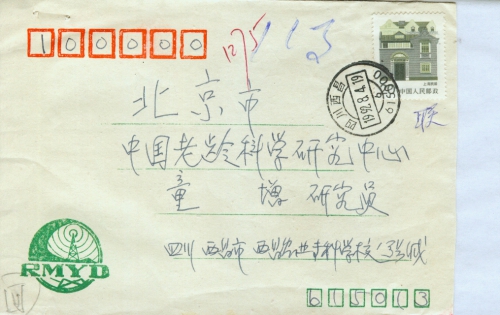 100000
12/5
113
上海民居
中国人民邮政
四川西昌
1992.8.4.19
615000
联
北京市
中国老龄科学研究中心
童 增 研究员
RMYD
四川 西昌市 西昌 学校 张
615013